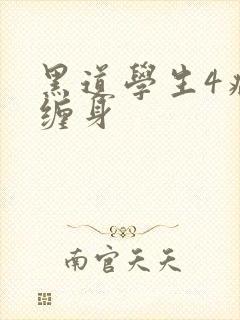 黑道學生4
缠身
南宫天天